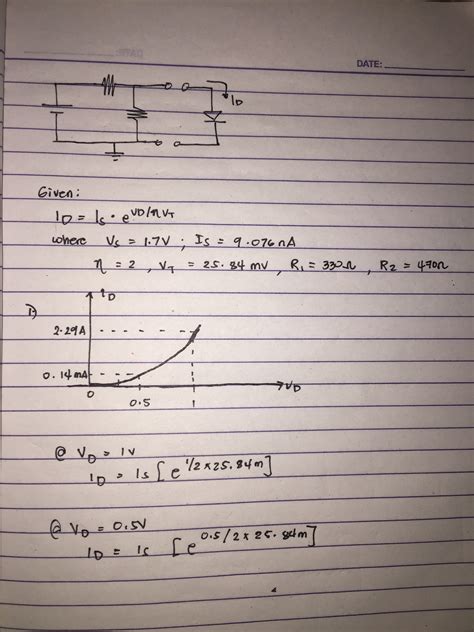 DATE:
I_D
Given:
I_D = I_s · e^VD/ηV_T
where V_s = 1.7V ; I_s = 9.076 nA
η = 2 , V_T = 25.84 mV , R_1 = 330Ω , R_2 = 470Ω
1) i_D
2.29A
0.14mA
0 0.5 1 V_D
@ V_D = 1V
I_D = I_s [e^1/2 x 25.84m]
@ V_D = 0.5V
I_D = I_s [e^0.5/2 x 25.84m]